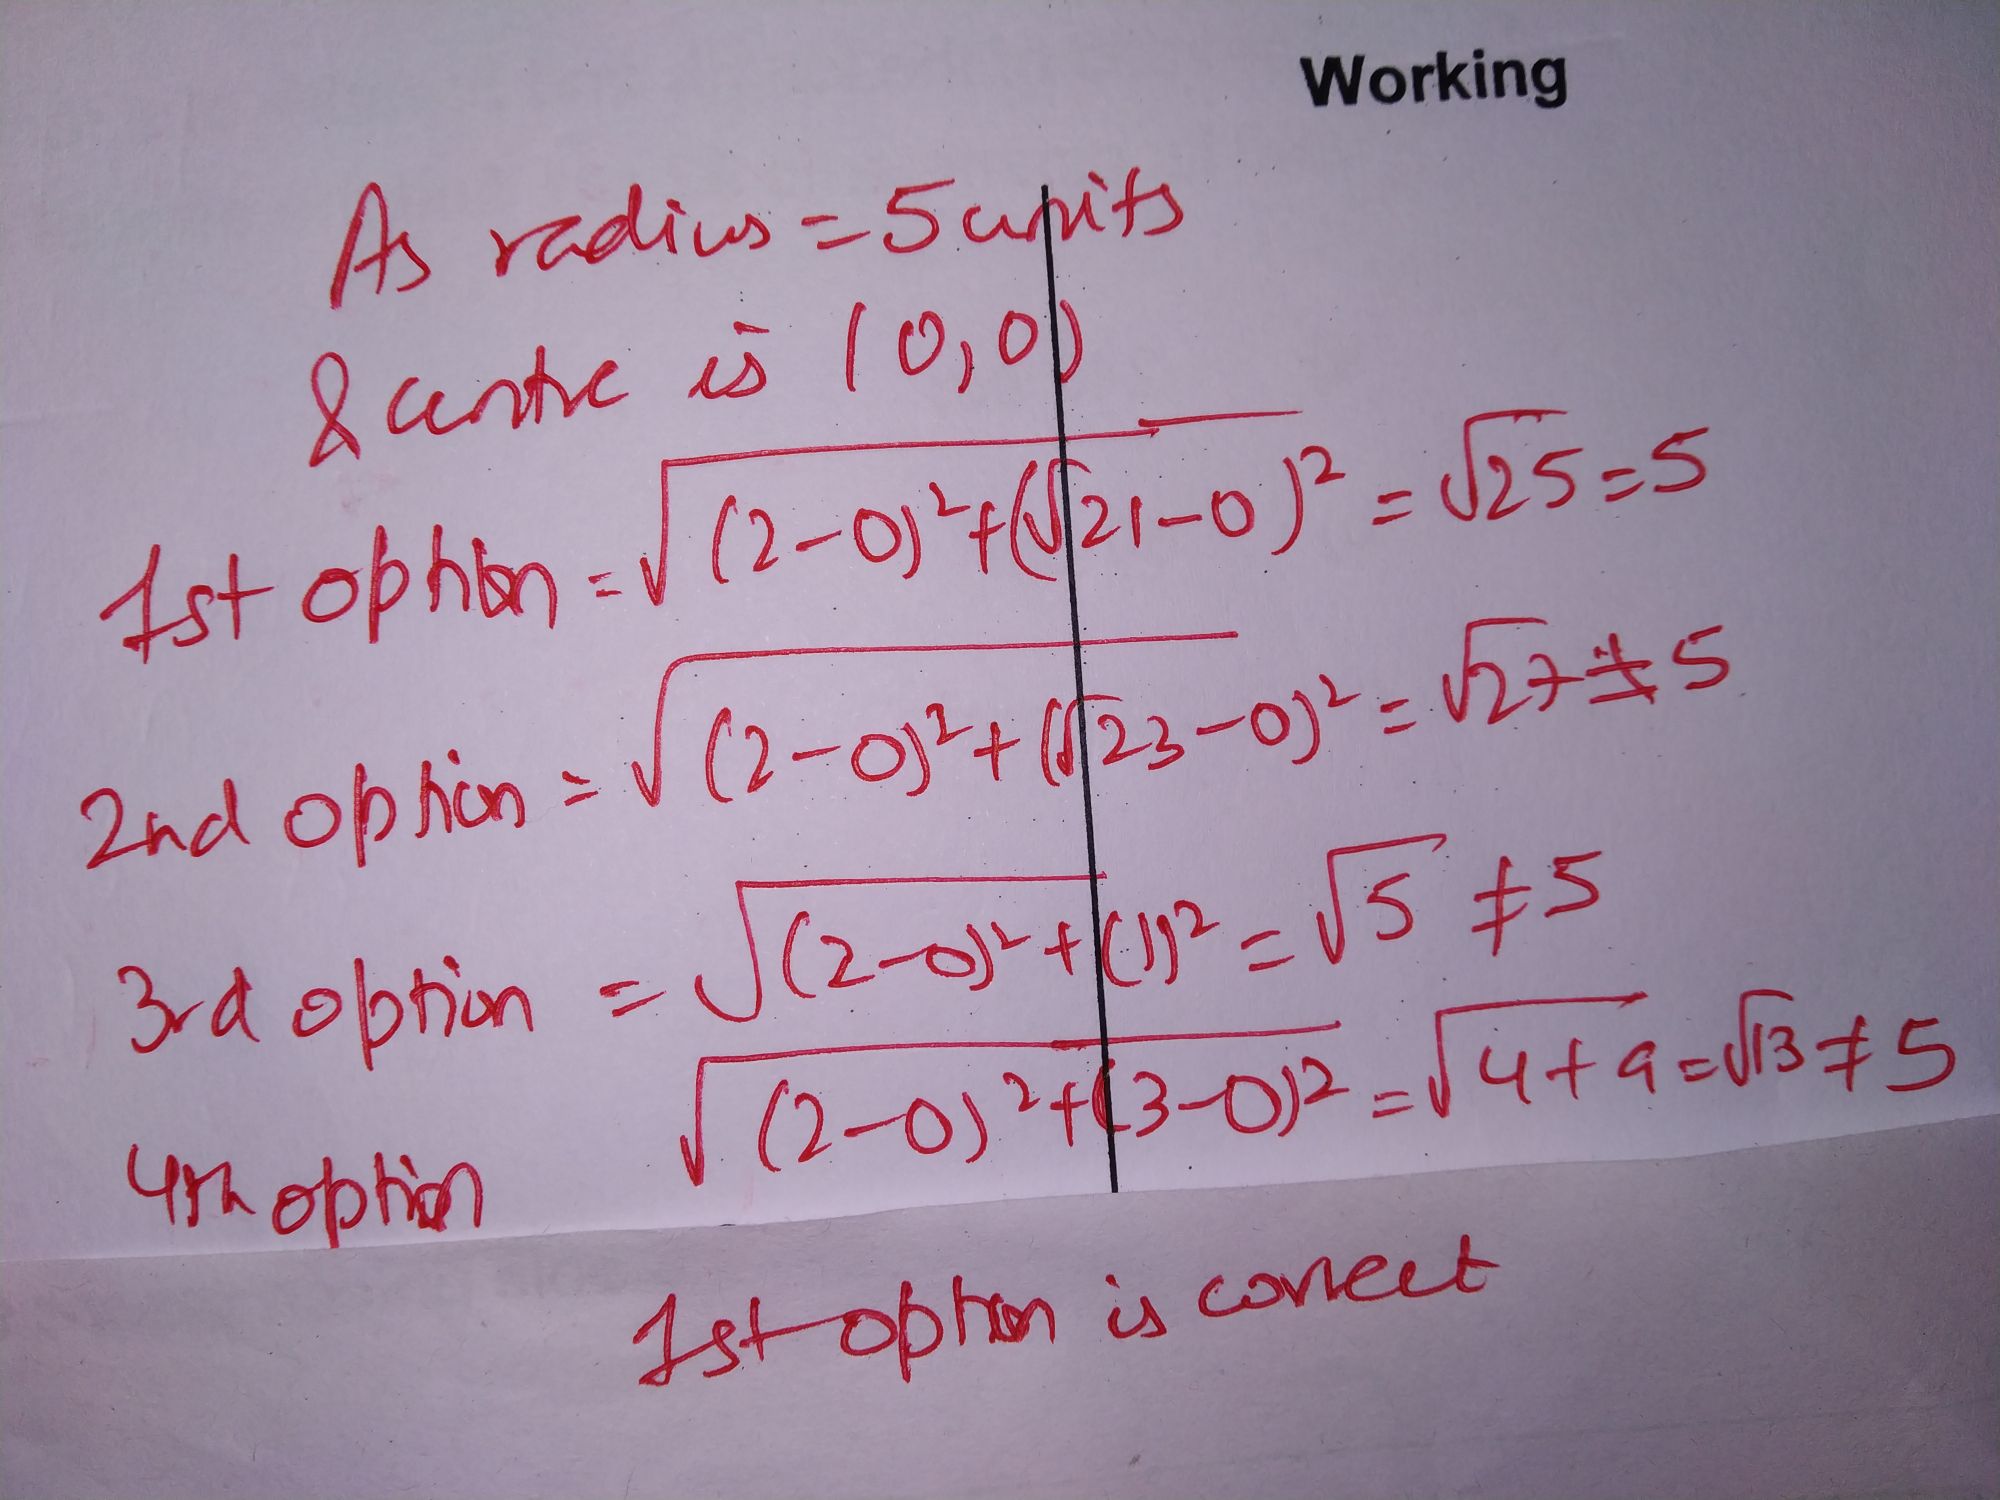 Working
As radius = 5 units
& centre is (0,0)
1st option = √(2-0)²+(√21-0)² = √25 = 5
2nd option = √(2-0)²+(√23-0)² = √27 ≠ 5
3rd option = √(2-0)²+(1)² = √5 ≠ 5
4th option √(2-0)²+(3-0)² = √4+9 = √13 ≠ 5
1st option is correct